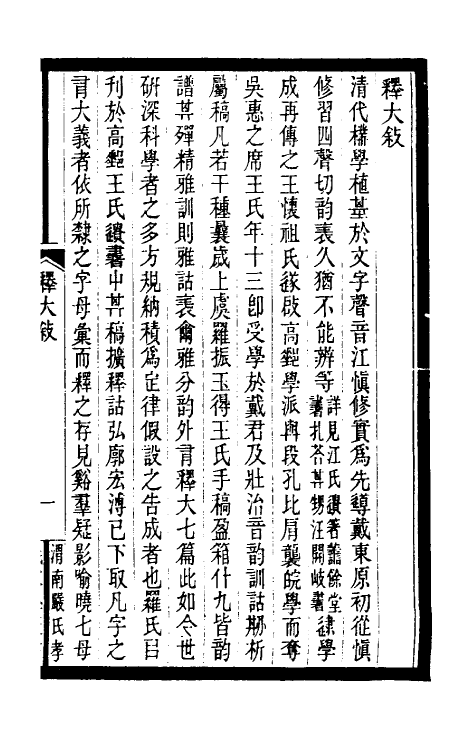 釋大敍
清代樸學植基於文字聲音江愼修實爲先導戴東原初從愼
修習四聲切韵表久猶不能辨等詳見江氏遺著善餘堂書札荅其甥汪開岐書逮學
成再傳之王懷祖氏遂啟高郵學派與段孔比肩襲皖學而奪
吳惠之席王氏年十三卽受學於戴君及壯治音韵訓詁剏析
屬稿凡若干種曩歲上虞羅振玉得王氏手稿盈箱什九皆韵
譜其殫精雅訓則雅詁表爾雅分韵外㫖釋大七篇此如今世
硏深科學者之多方規納積爲定律假設之告成者也羅氏㠯
刊於高郵王氏遺書中其稿擴釋詁弘廓宏溥已下取凡字之
㫖大義者依所隸之字母彙而釋之存見谿羣疑影喻曉七母
釋大敍
一
渭南嚴氏孝